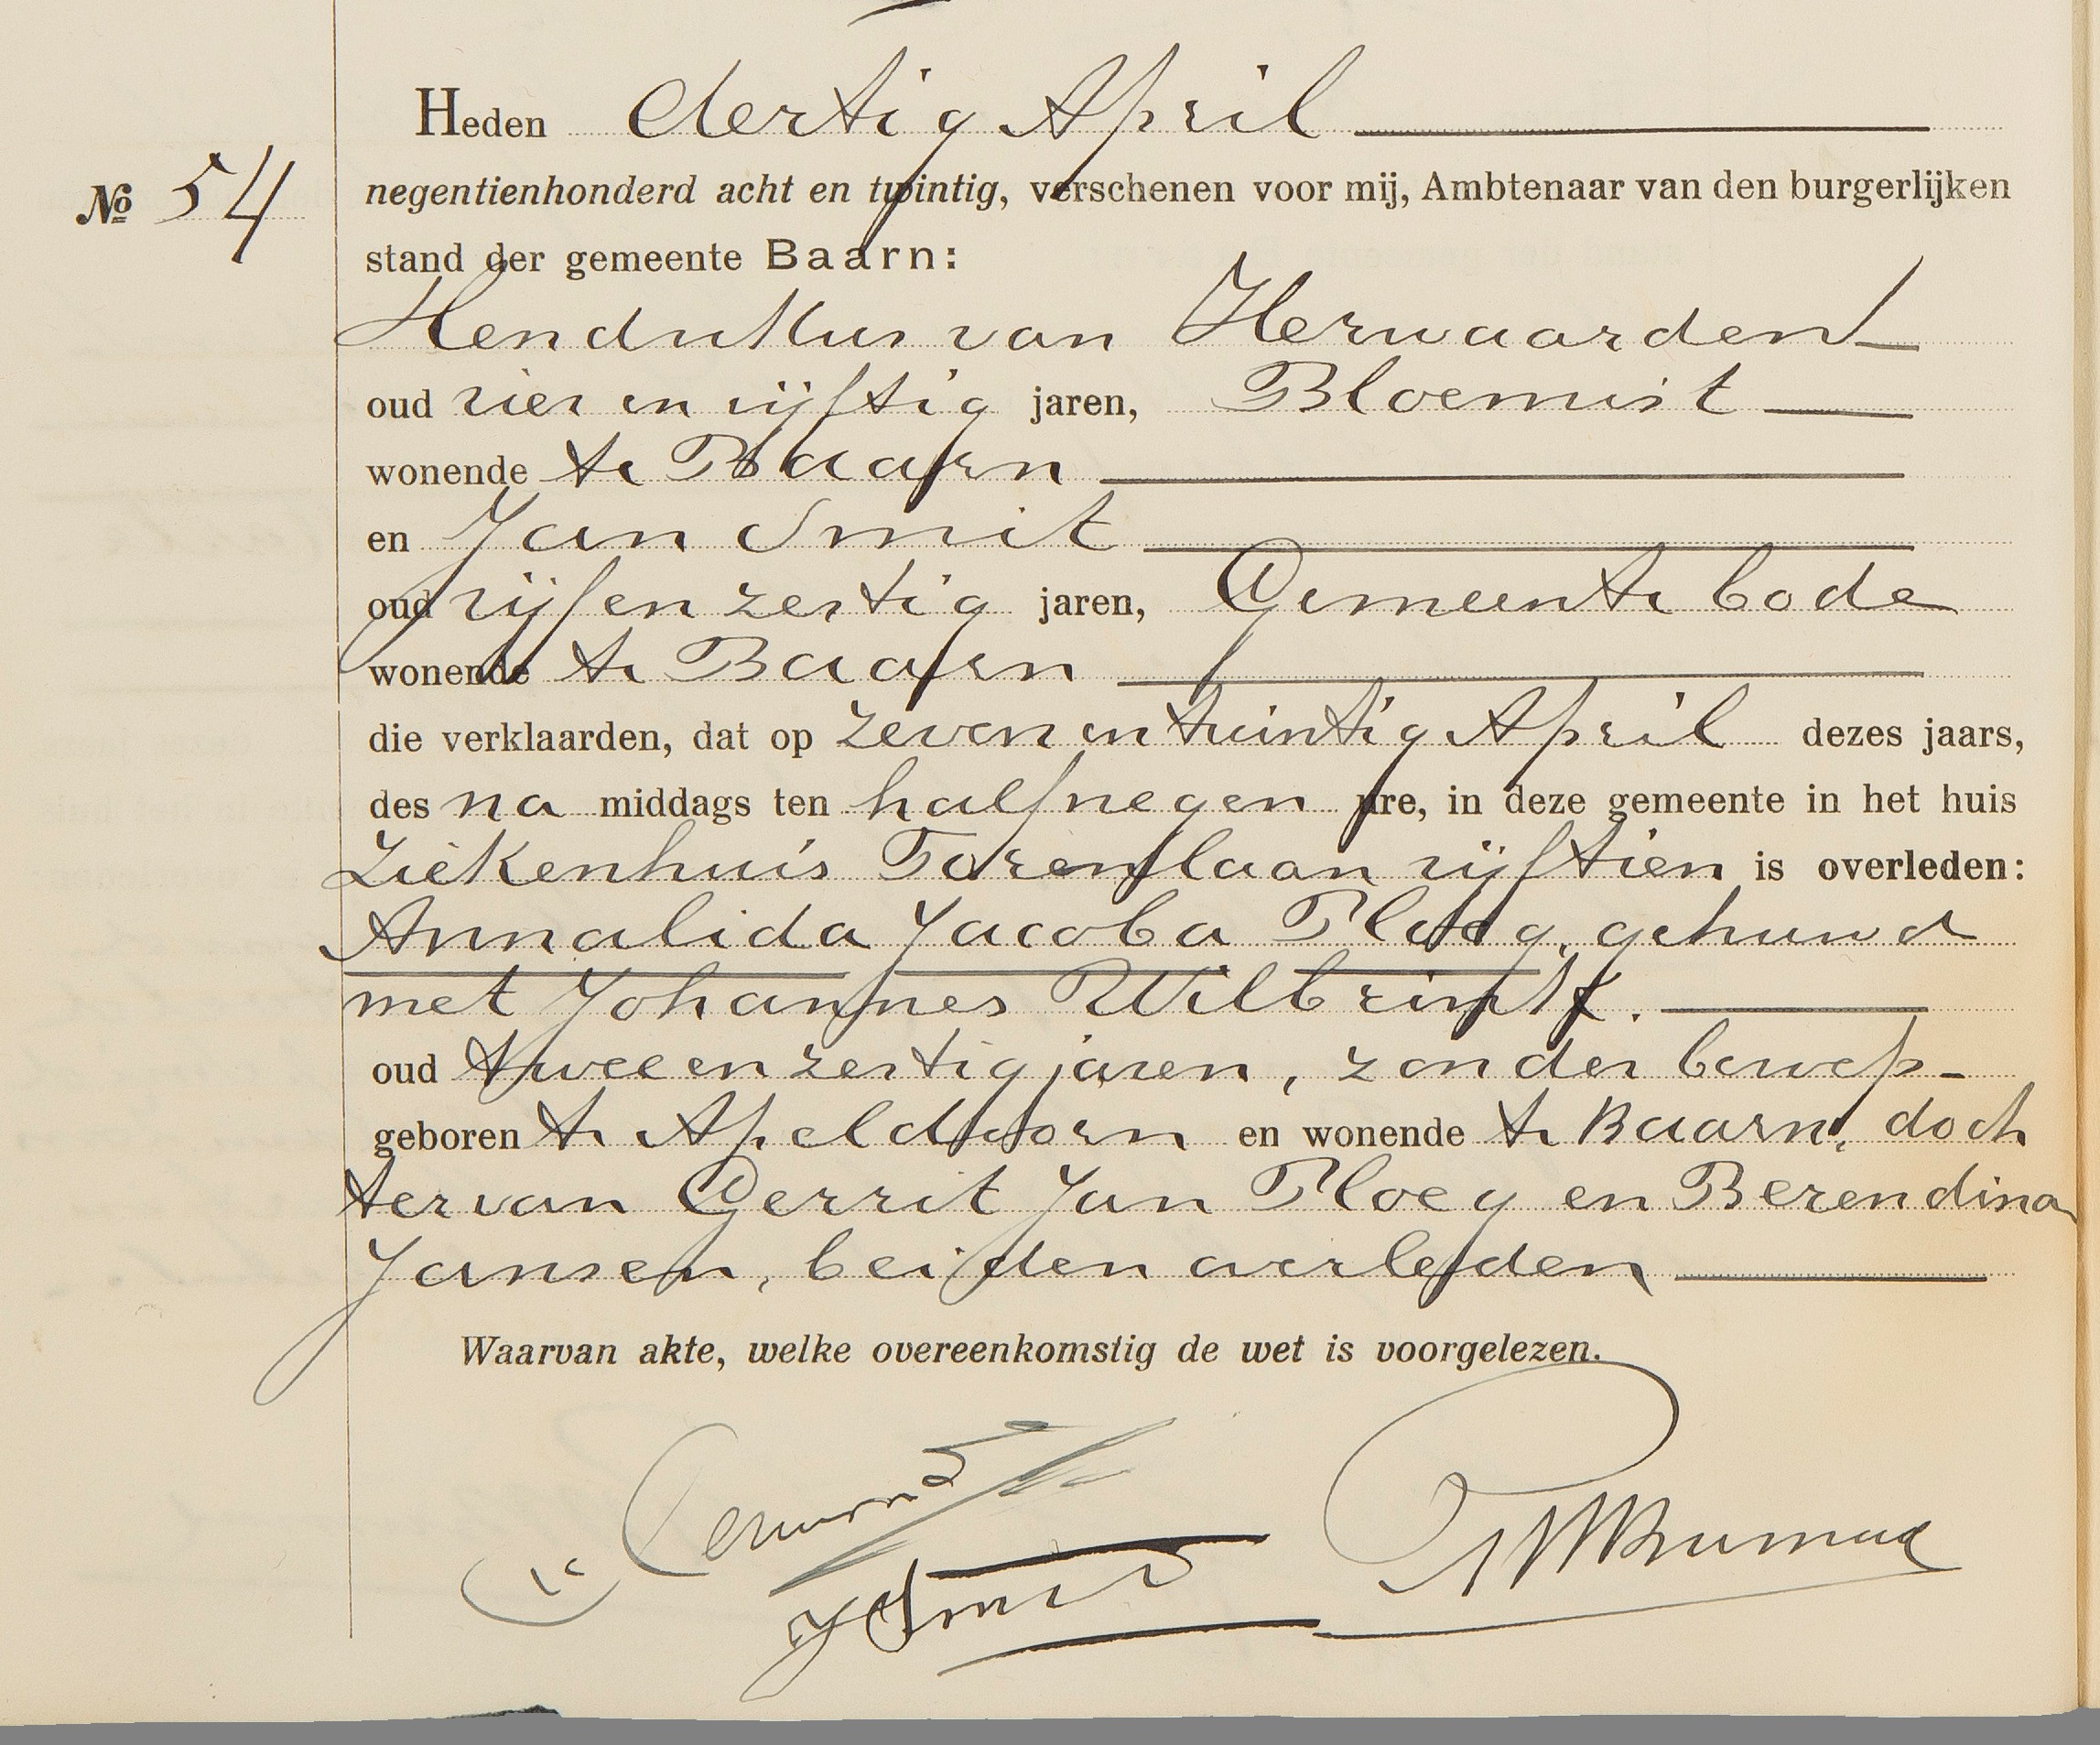 Heden dertig April
No 54
negentienhonderd acht en twintig, verschenen voor mij, Ambtenaar van den burgerlijken
stand der gemeente Baarn:
Hendrikus van Herwaarden
oud vier en vijftig jaren, Bloemist
wonende te Baarn
en Jan Smit
oud vijf en zestig jaren, Gemeente bode
wonende te Baarn
die verklaarden, dat op zeven en twintig April dezes jaars,
des na middags ten half negen ure, in deze gemeente in het huis
Ziekenhuis Torenlaan vijftien is overleden:
Annalida Jacoba Ploeg, gehuwd
met Johannes Wilbrink.
oud twee en zestig jaren, zonder beroep
geboren te Apeldoorn en wonende te Baarn, doch
ter van Gerrit Jan Ploeg en Berendina
Jansen, beiden overleden
Waarvan akte, welke overeenkomstig de wet is voorgelezen.
J Smit